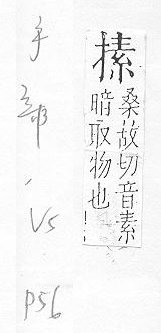 手部, V5
P56
搸
桑故切音素
暗取物也